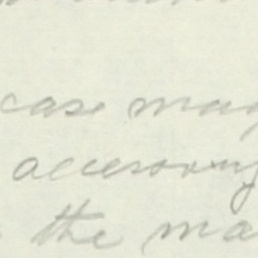 case may
accessory
the ma